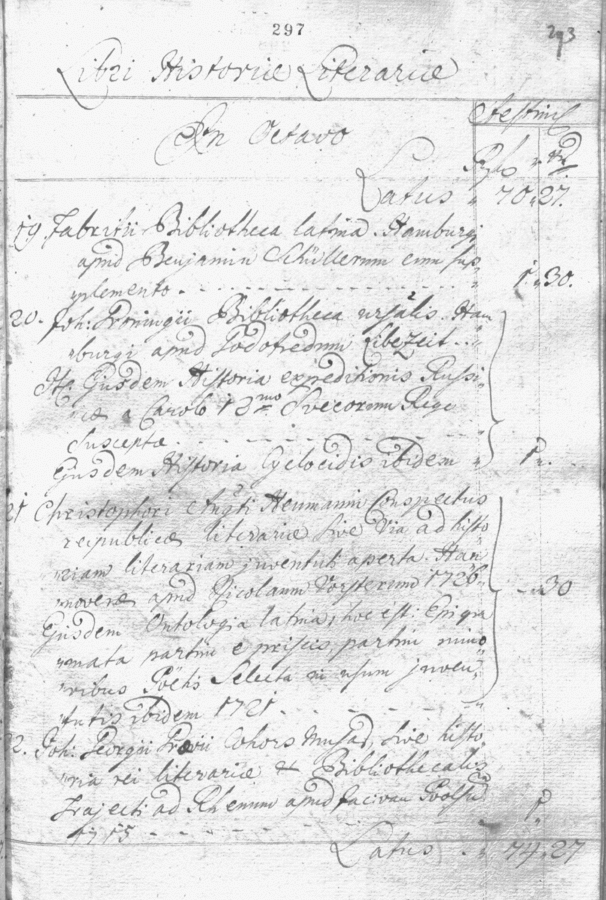 297
293
Libri Historiæ Literariæ
In Octavo
Latus „ 70 „ 27.
19. Fabritii Bibliotheca latina. Hamburgi
apud Benjamin Schillerum cum sup
plemento. 1 „ 30.
20. Joh: Bibliotheca Ham
burgi apud Liebezeit
It. Ejusdem Historia expeditionis Russi
cæ a Carolo 12mo Svecorum Rege
suscepta.
Ejusdem Historia Cycloidis ibidem 1 „
21 Christophori Augti Heumanni Conspectus
reipublicæ literariæ sive Via ad histo
riam literariam juventuti aperta. Han
noveræ apud Nicolaum Försterum 1726 „ 30
Ejusdem Antologia latina, hoc est: Epigra
mata partim e priscis partim
ribus Poëtis Selecta in usum juven
tutis ibidem 1721
22. Joh: Georgii Cohors Musar. sive histo
ria rei literariæ &
Trajecti ad Rhenum apud 1
1715
Latus „ 74 „ 27